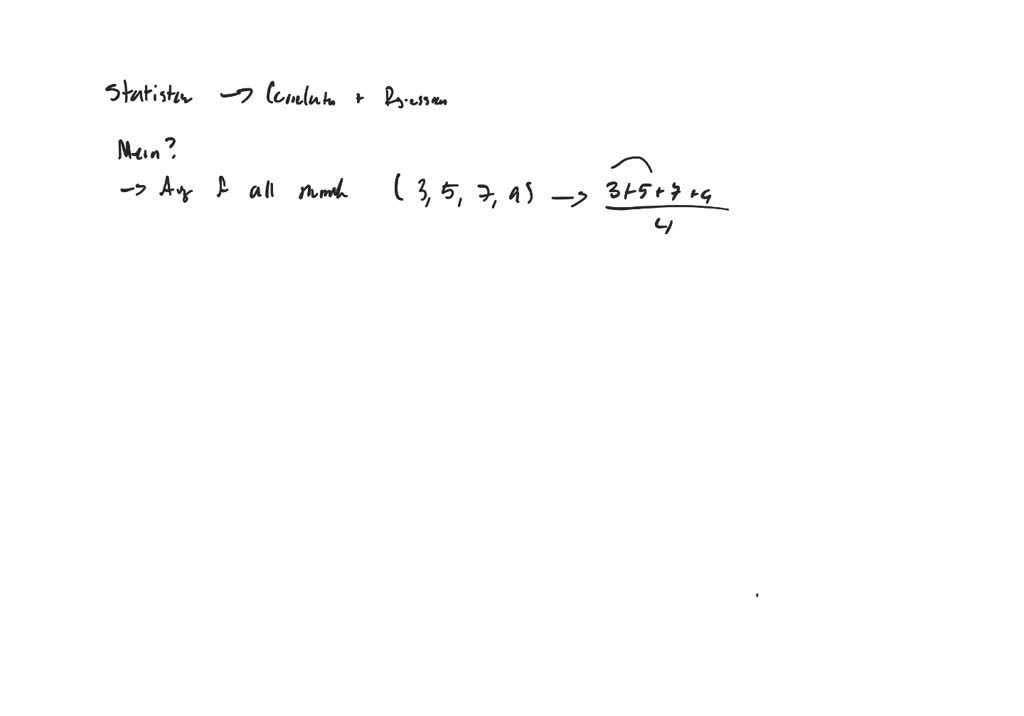 Statistics → Correlation + Regression
Mean?
→ Avg of all numb (3, 5, 7, 9) → 3+5+7+9
4